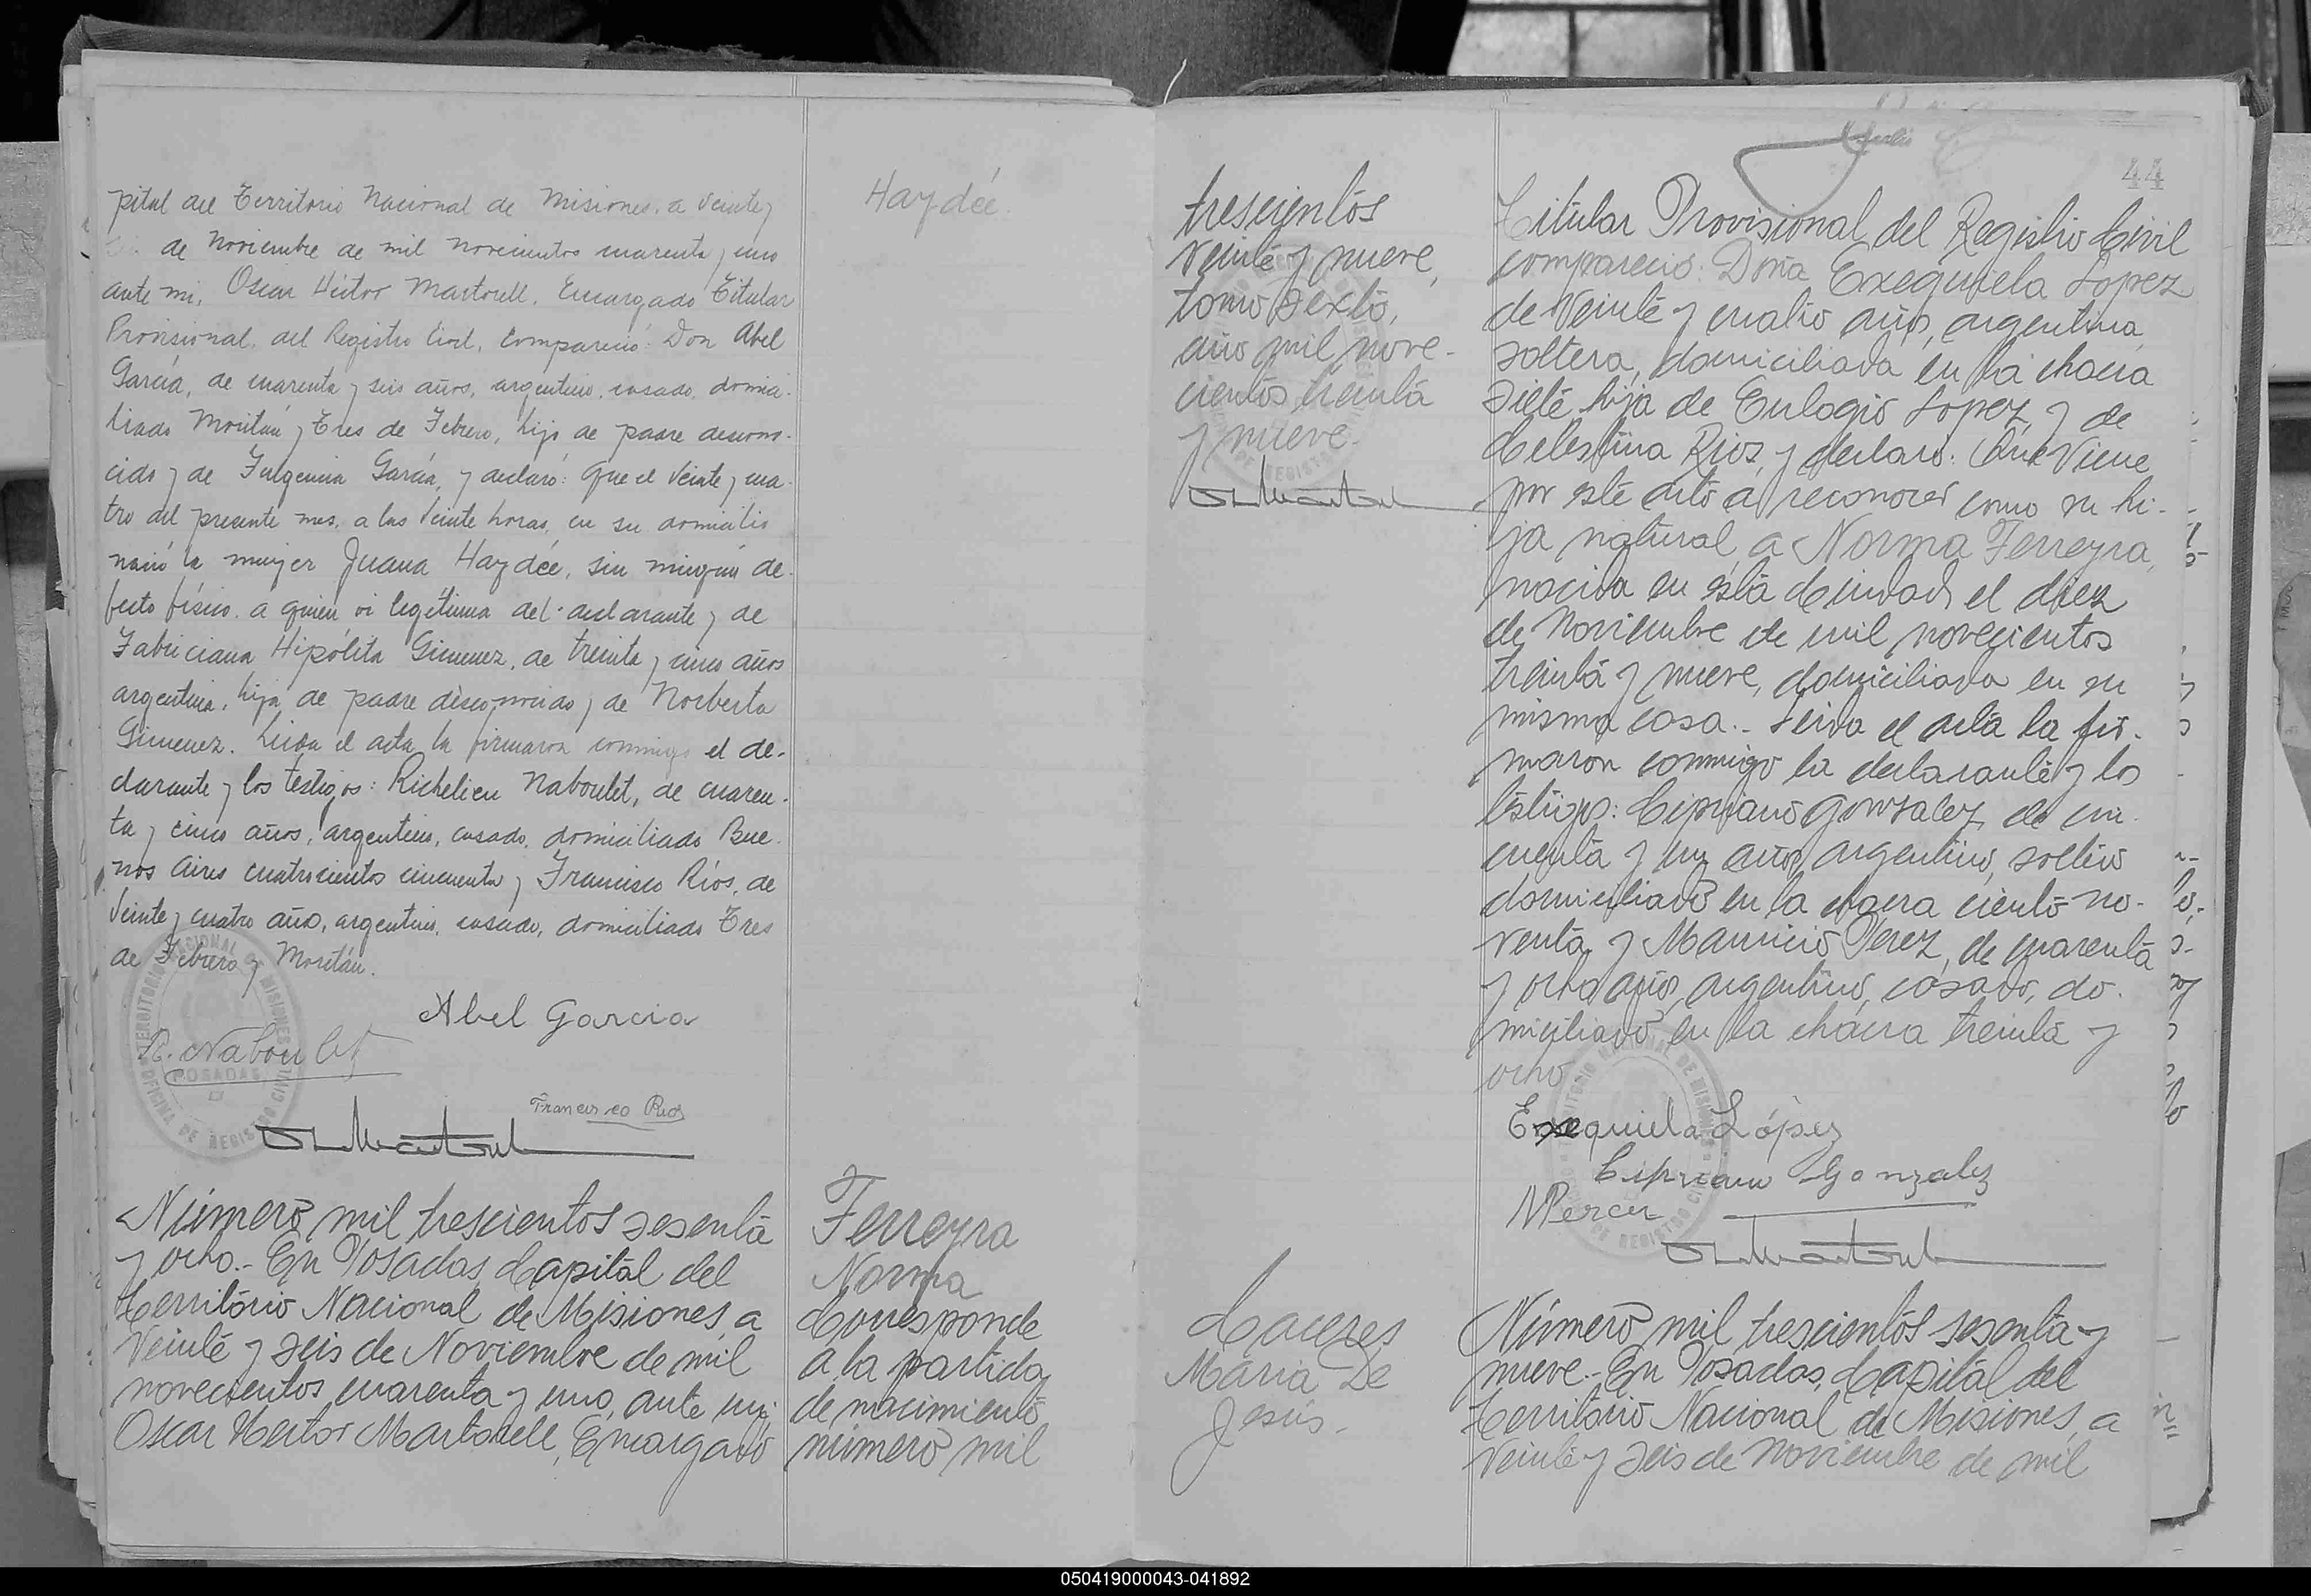 pital del Territorio Nacional de Misiones, a veinte y
de Noviembre de mil novecientos cuarenta y uno
ante mi, Oscar Hector Martorell, Encargado Titular
Provisional, del Registro Civil, compareció: Don Abel
García, de cuarenta y seis años, argentino, casado, domici-
liado Moritán y Tres de Febrero, hijo de padre descono-
cido y de Fulgencia García, y declaró: Que el veinte y cua-
tro del presente mes, a las veinte horas, en su domicilio
nació la mujer Juana Haydée, sin ningún de-
fecto físico, a quien vi legítima del declarante y de
Fabriciana Hipólita Gimenez, de treinta y cinco años
argentina, hija de padre desconocido y de Norberta
Gimenez. Leida el acta la firmaron conmigo el de-
clarante y los testigos: Richelieu Naboulet, de cuaren-
ta y cinco años, argentino, casado, domiciliado Bue-
nos Aires cuatrocientos cincuenta y Francisco Ríos, de
veinte y cuatro años, argentino, casado, domiciliado Tres
de Febrero y Moritán.
Abel Garcia
R. Naboulet
Francisco Rios
Haydée.
Número mil trescientos sesenta
y ocho.- En Posadas, Capital del
Territorio Nacional de Misiones, a
veinte y seis de Noviembre de mil
novecientos cuarenta y uno, ante mi:
Oscar Hector Martorell, Encargado
Ferreyra
Norma
Corresponde
a la partida
de nacimiento
número mil
trescientos
veinte y nueve,
tomo sexto,
año mil nove-
cientos treinta
y nueve.-
44
Titular Provisional del Registro Civil
compareció: Doña Exequiela Lopez
de veinte y cuatro años, argentina,
soltera, domiciliada en la chacra
siete, hija de Eulogio Lopez, y de
Celestina Rios, y declaro: Que viene
por este acto a reconocer como su hi-
ja natural, a Norma Ferreyra,
nacida en esta Ciudad, el diez
de Noviembre de mil novecientos
treinta y nueve, domiciliada en su
misma casa.- Leida el acta la fir-
maron conmigo la declarante y los
testigos: Cipriano Gonzalez, de cin-
cuenta y un años, argentino, soltero
domiciliado en la chacra ciento no-
venta y Mauricio Perez, de cuarenta
y ocho años, argentino, casado, do-
miciliado en la chacra treinta y
ocho
Exequiela López
Cipriano Gonzalez
TERRITORIO NACIONAL DE MISIONES
POSADAS
OFICINA DE REGISTRO CIVIL
Caceres
Maria De
Jesús.-
Número mil trescientos sesenta y
nueve.- En Posadas, Capital del
Territorio Nacional de Misiones, a
veinte y seis de Noviembre de mil
050419000043-041892